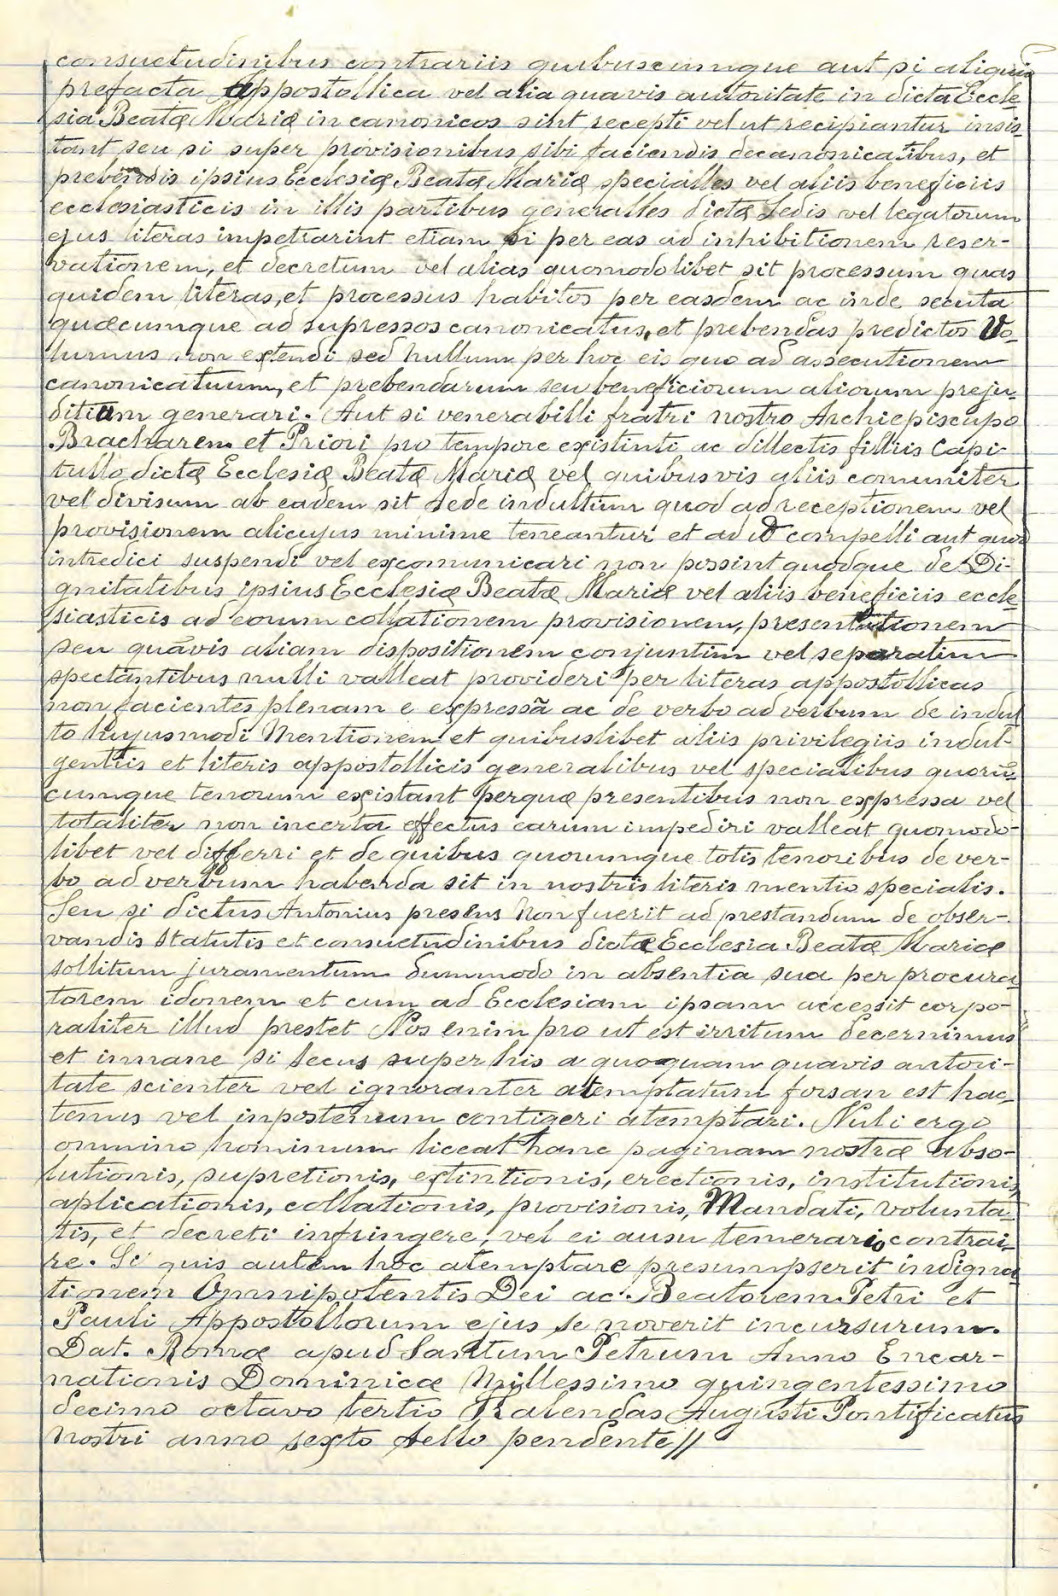 consuetudinibus contrariis quibuscumque aut si aliquia
prefacta Appostollica vel alia quavis autoritate in dicta Eccle-
sia Beatæ Mariæ in canonicos sint recepti vel ut recipiantur insis-
tant seu si super provisionibus sibi faciendis de canonicatibus, et
prebendis ipsius Ecclesiæ Beatæ Mariæ specialles vel aliis beneficiis
ecclesiasticis in illis partibus generalles dictæ Sedis vel legatorum
ejus literas impetrarint etiam si per eas ad inhibitionem reser-
vationem, et decretum vel alias quomodolibet sit processum quas
quidem literas, et processus habitos per easdem ac inde secuta
quæcumque ad supressos canonicatus, et prebendas predictos Vo-
lumus non extendi sed nullum per hoc eis quo ad assecutionem
canonicatuum, et prebendarum seu beneficiorum aliorum preju-
ditium generari. Aut si venerabilli fratri nostro Archiepiscupo
Bracharem et Priori pro tempore existinti, ac dillectis filliis Capi-
tullo dictæ Ecclesiæ Beatæ Mariæ vel quibusvis aliis comuniter
vel divisum ab eadem sit Sede indultum quod ad receptionem vel
provisionem alicujus minime teneantur et ad id compelli aut quod
intredici suspendi vel excomunicari non possint quodque de Di-
gnitatibus ipsius Ecclesiæ Beatæ Mariæ vel aliis beneficiis eccle-
siasticis ad eorum collationem provisionem, presentationem
seu quavis aliam dispositionem conjuntim vel separatim
spectantibus nulli valleat provideri per literas appostollicas
non facientes plenam e expressã ac de verbo ad verbum de indul
to hujusmodi Mentionem et quibuslibet aliis privilegiis indul-
gentiis et literis appostollicis generalibus vel specialibus quorũ-
cumque tenorum existant perquæ presentibus non expressa vel
totaliter non incerta effectus earum impediri valleat quomodo-
libet vel differri et de quibus quorumque totis tenoribus de ver-
bo ad verbum habenda sit in nostris literis mentio specialis.
Seu si dictus Antonius presens non fuerit ad prestandum de obser-
vandis statutis et consuetudinibus dictæ Ecclesia Beatæ Mariæ
sollitum juramentum dummodo in absentia sua per procura
torem idonem et cum ad Ecclesiam ipsam accessit corpo-
raliter illud prestet Nos enim pro ut est irritum decernimus
et innane si secus super his a quoquam quavis autori-
tate scienter vel ignoranter atemptatum forsan est hac-
tenus vel inposterum contigeri atemptari. Nuli ergo
omnino hominum liceat hanc paginam nostræ abso-
lutionis, supretionis, extintionis, erectionis, institutionis,
aplicationis, collationis, provisionis, Mandati, volunta-
tis, et decreti infringere, vel ei ausu temerario contrai-
re. Si quis autem hoc atemptare presumpserit indigna
tionem Omnipotentis Dei ac Beatorem Petri et
Pauli Appostollorum ejus se noverit incursurum.
Dat. Romæ apud Santum Petrum Anno Encar-
nationis Dominicæ Millessimo quingentessimo
decimo octavo tertio Kalendas Augusti Pontificatus
nostri anno sexto sello pendente//